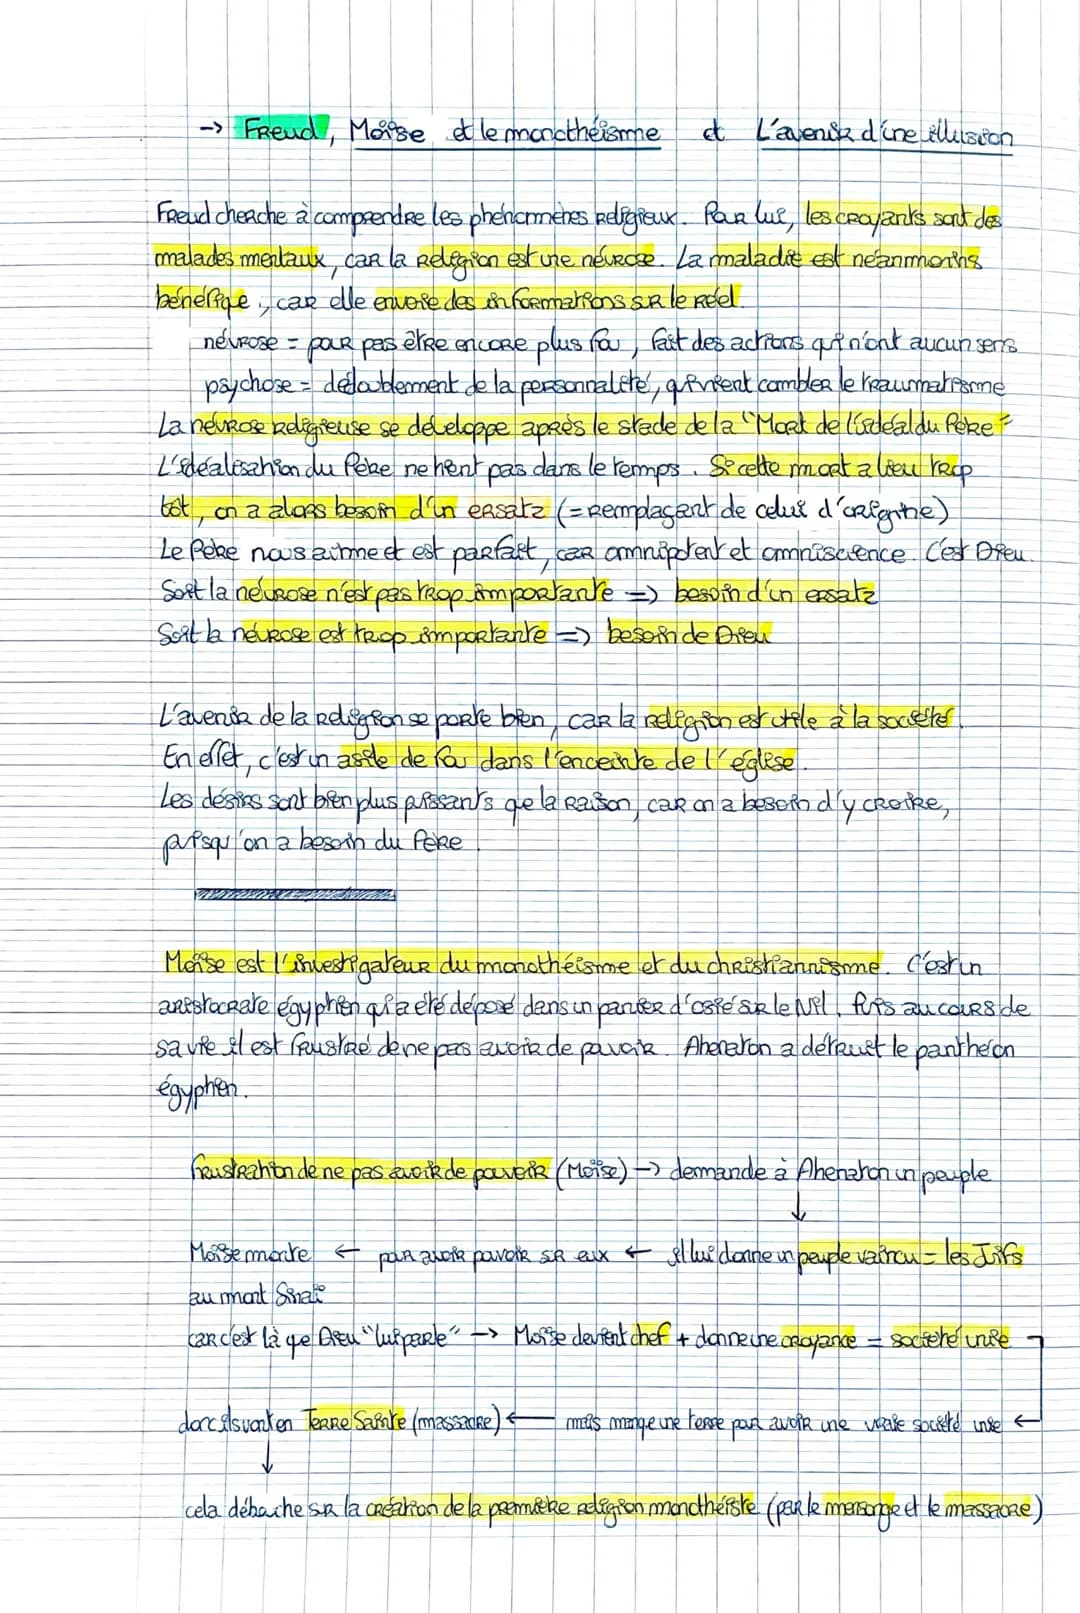 -> Freud, Moïse et le monothéisme et L'avenir d'une illusion
Freud cherche à comprendre les phénomènes religieux. Pour lui, les croyants sont des
malades mentaux, car la religion est une névrose. La maladie est néanmoins
bénéfique, car elle envoie des informations sur le réel.
névrose = pour pas être encore plus fou, fait des actions qui n'ont aucun sens
psychose = dédoublement de la personnalité, qui vient combler le traumatisme
La névrose religieuse se développe après le stade de la "Mort de l'idéal du Père"
L'idéalisation du Père ne tient pas dans le temps. Si cette mort a lieu trop
tôt, on a alors besoin d'un ersatz (= remplaçant de celui d'origine)
Le Père nous aime et est parfait, car omnipotent et omniscience. C'est Dieu.
Soit la névrose n'est pas trop importante => besoin d'un ersatz
Soit la névrose est trop importante => besoin de Dieu
L'avenir de la religion se porte bien, car la religion est utile à la société.
En effet, c'est un asile de fou dans l'enceinte de l'église.
Les désirs sont bien plus puissants que la raison, car on a besoin d'y croire,
puisqu'on a besoin du Père
Moïse est l'investigateur du monothéisme et du christiannisme. C'est un
aristocrate égyptien qui a été déposé dans un panier d'osié sur le Nil. Puis au cours de
sa vie il est frustré de ne pas avoir de pouvoir. Ahenaton a détruit le panthéon
égyptien.
frustration de ne pas avoir de pouvoir (Moïse) -> demande à Ahenaton un peuple
↓
Moïse monte ← pour avoir pouvoir sur eux ← il lui donne un peuple vaincu = les Juifs
au mont Sinaï
car c'est là que Dieu "lui parle" -> Moïse devient chef + donne une croyance = société unie
donc ils vont en Terre Sainte (massacre) ← mais manque une terre pour avoir une vraie société unie ←
↓
cela débouche sur la création de la première religion monothéiste (par le mensonge et le massacre)